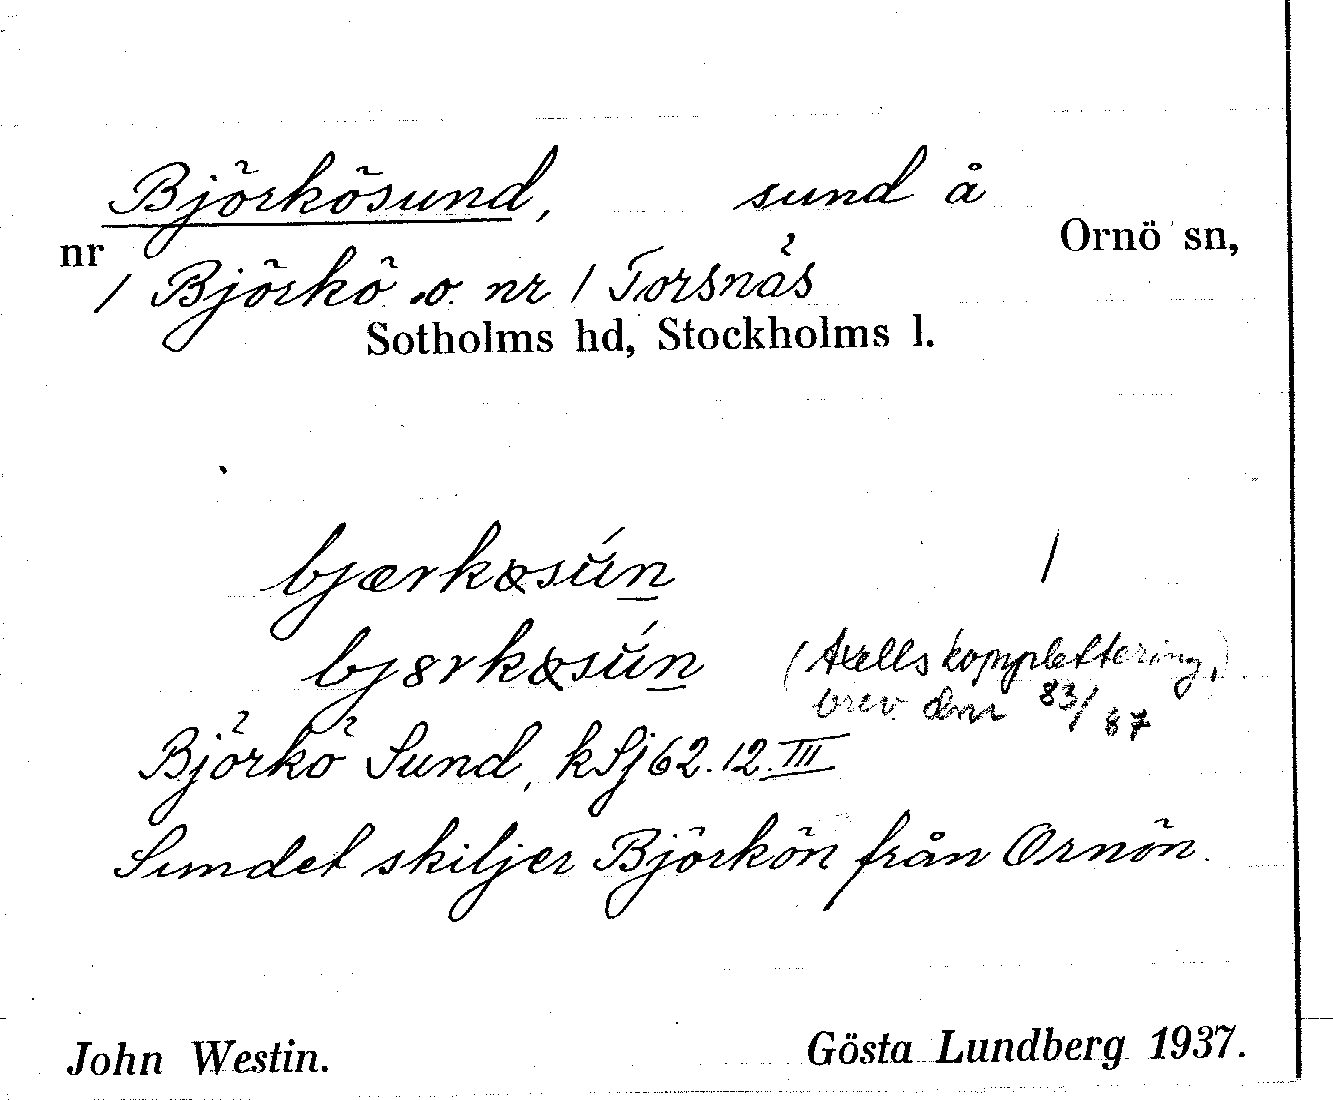 Björkösund, sund å
nr Ornö sn,
1 Björkö o. nr 1 Torsnäs
Sotholms hd, Stockholms l.
bjærkøsún 1
bjørkøsún (Axells komplettering,
brev den 83/87
Björkö Sund, kSj62.12.III
Sundet skiljer Björkön från Ornön.
John Westin. Gösta Lundberg 1937.